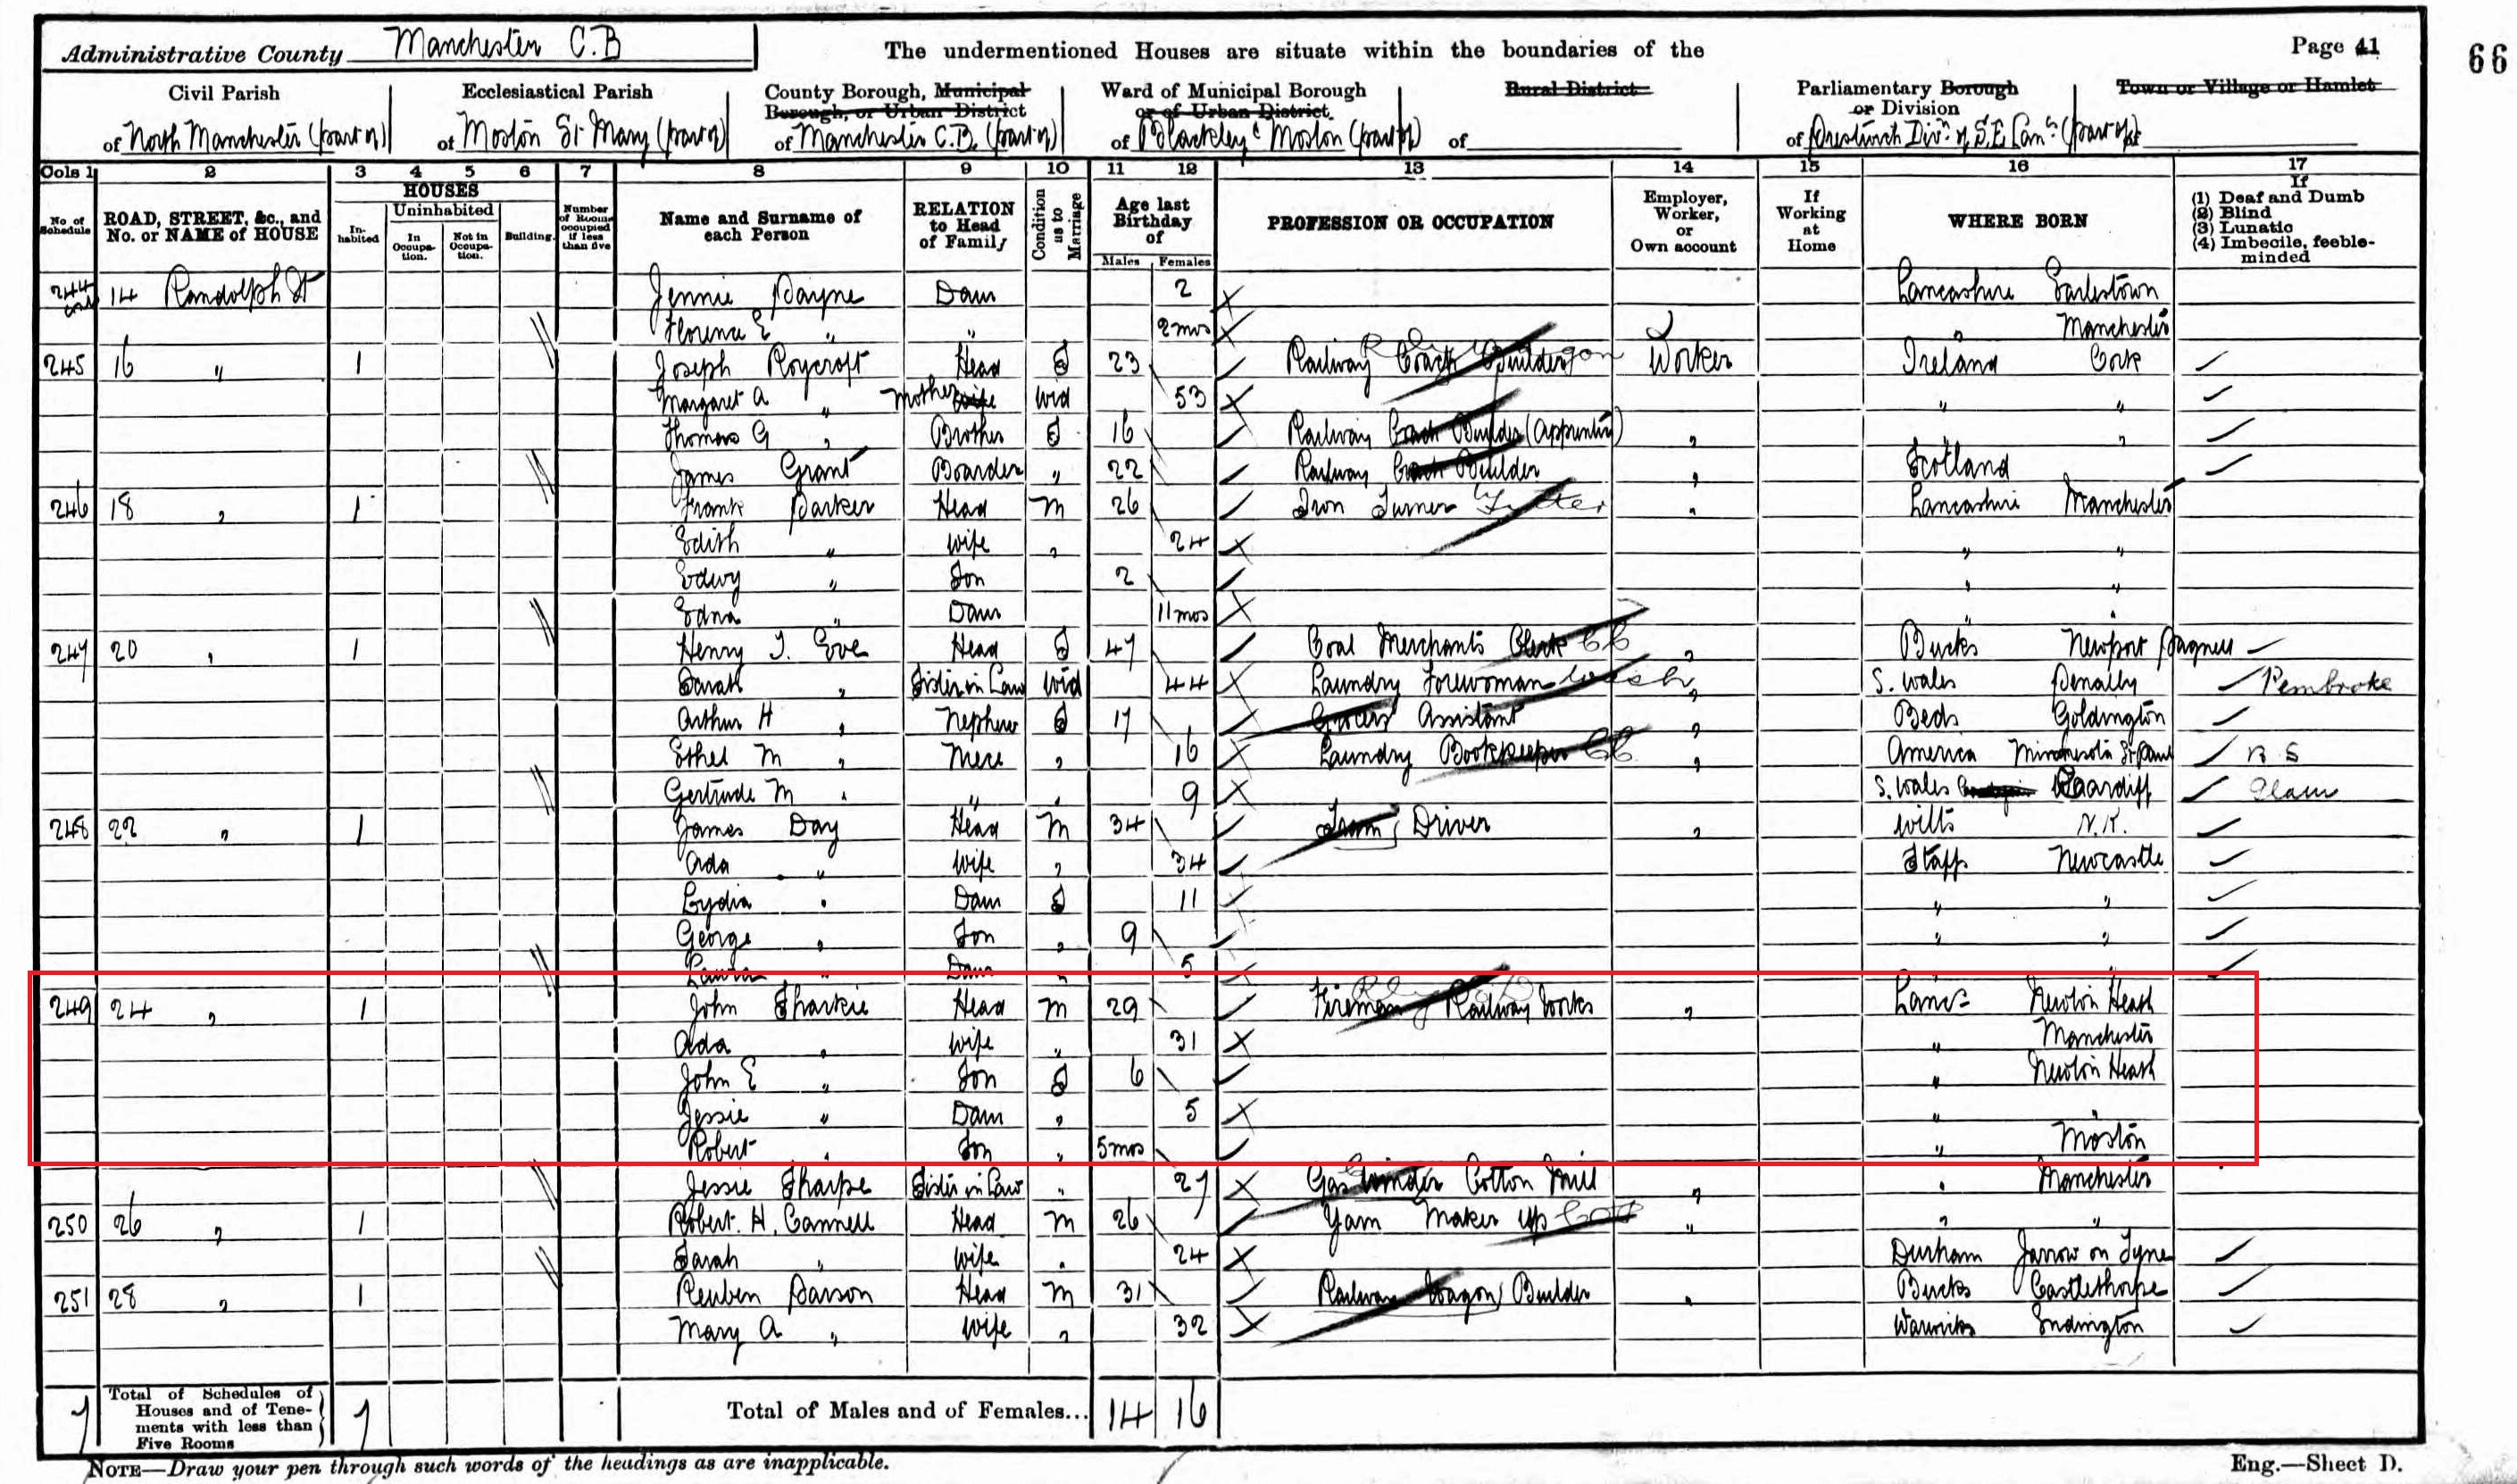 Administrative County Manchester C.B
The undermentioned Houses are situate within the boundaries of the
Page 41
66
Civil Parish
of North Manchester (part of)
Ecclesiastical Parish
of Moston St Mary (part of)
County Borough, Municipal
Borough, or Urban District
of Manchester C.B. (part of)
Ward of Municipal Borough
or of Urban District
of Blackley & Moston (part of)
Rural District
of
Parliamentary Borough
or Division
of Prestwich Divn of S.E Lancs (part of)
Town or Village or Hamlet
of
Cols 1 2 3 4 5 6 7 8 9 10 11 12 13 14 15 16 17
No. of Schedule
ROAD, STREET, &c., and No. or NAME of HOUSE
HOUSES
In-habited
Uninhabited
In Occupa-tion.
Not in Occupa-tion.
Building.
Number of Rooms occupied if less than five
Name and Surname of each Person
RELATION to Head of Family
Condition as to Marriage
Age last Birthday of
Males Females
PROFESSION OR OCCUPATION
Employer, Worker, or Own account
If Working at Home
WHERE BORN
If
(1) Deaf and Dumb
(2) Blind
(3) Lunatic
(4) Imbecile, feeble-minded
244 14 Randolph St Jennie Payne Daur 2 Lancashire Earlestown
Florence E " " 2mos " Manchester
245 16 " 1 Joseph Roycroft Head S 23 Railway Coach Builder Worker Ireland Cork
Margaret A " Mother wife Wid 53 " "
Thomas G " Brother S 16 Railway Coach Builder (Apprentice) " "
James Grant Boarder " 22 Railway Coach Builder " Scotland
246 18 " 1 Frank Parker Head M 26 Iron Turner Fitter " Lancashire Manchester
Edith " wife " 24 " "
Edwy " Son 2 " "
Edna " Daur 11mos " "
247 20 " 1 Henry J. Eve Head S 47 Coal Merchants Clerk " Bucks Newport Pagnell
Sarah " Sister in Law Wid 44 Laundry Forewoman Wash " S. Wales Penally Pembroke
Arthur H " Nephew S 17 Grocers Assistant " Beds Goldington
Ethel M " Niece " 16 Laundry Bookkeeper " America Minnesota St Paul B S
Gertrude M " " " 9 S. Wales Caardiff Glam
248 22 " 1 James Day Head M 34 Tram Driver " Wilts N.K.
Ada " wife " 34 Staff Newcastle
Lydia " Daur S 11 " "
George " Son " 9 " "
Laura " Daur " 5 " "
249 24 " 1 John Sharkie Head M 29 Fireman Railway Works " Lancs Newton Heath
Ada " wife " 31 " Manchester
John E " Son S 6 " Newton Heath
Jessie " Daur " 5 " "
Robert " Son " 5mos " Moston
Jessie Sharpe Sister in Law " 27 Gas Winder Cotton Mill " " Manchester
250 26 " 1 Robert. H. Cannell Head M 26 Yarn Maker Up " " "
Sarah " wife " 24 Durham Jarrow on Tyne
251 28 " 1 Reuben Parson Head M 31 Railway Wagon Builder " Bucks Castlethorpe
Mary A " Wife " 32 Warwicks
7 Total of Schedules of Houses and of Tene-ments with less than Five Rooms 7 Total of Males and of Females... 14 16
NOTE—Draw your pen through such words of the headings as are inapplicable.
Eng.—Sheet D.